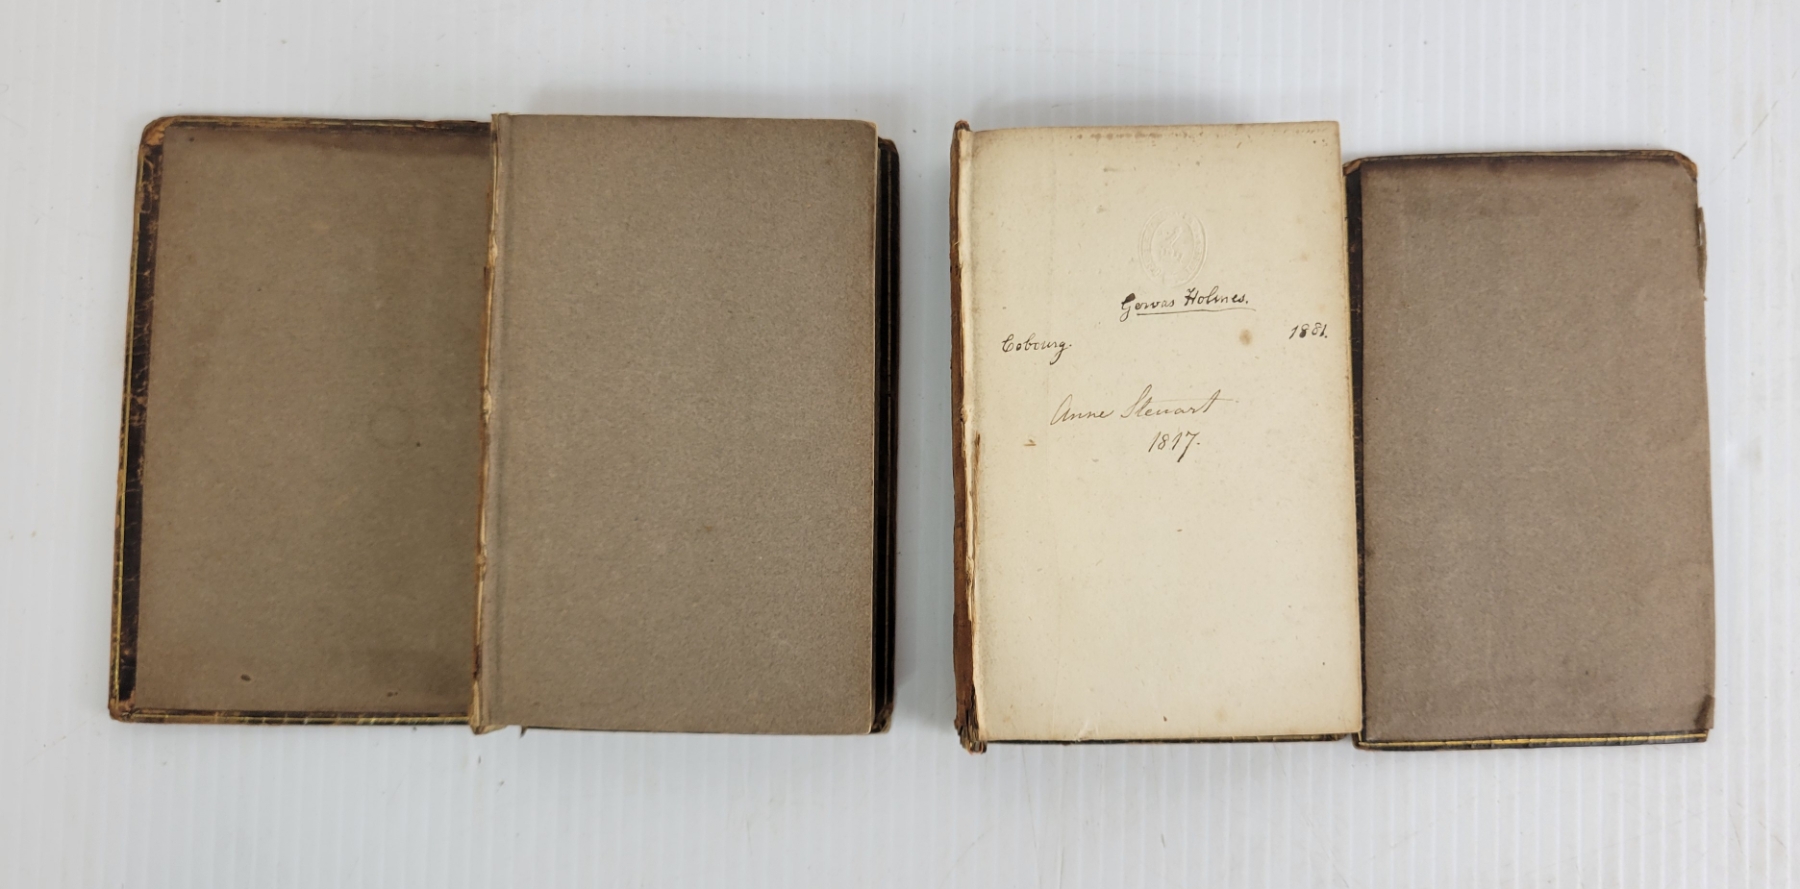 Gervas Holmes.
Cobourg. 1881.
Anne Steuart
1817.